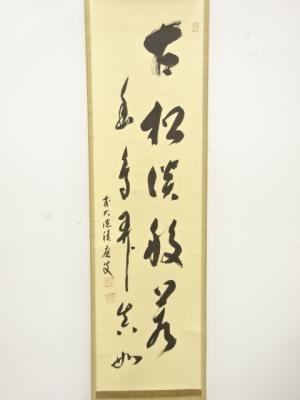 古松談般若
幽鳥弄真如
前大徳